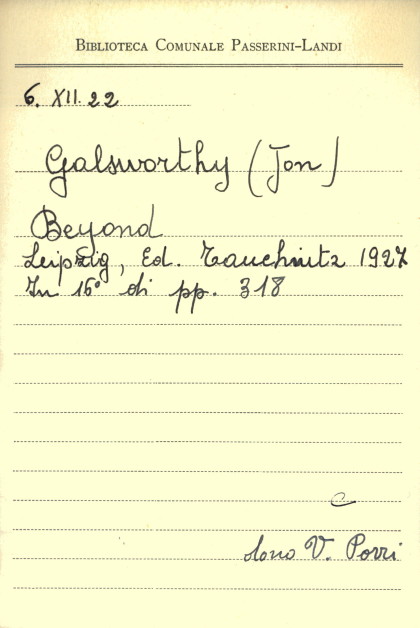 BIBLIOTECA COMUNALE PASSERINI-LANDI
6. XII. 22
Galsworthy (Jon)
Beyond
Leipzig, Ed. Tauchnitz 1927
In 16° di pp. 318
C
dono V. Porri